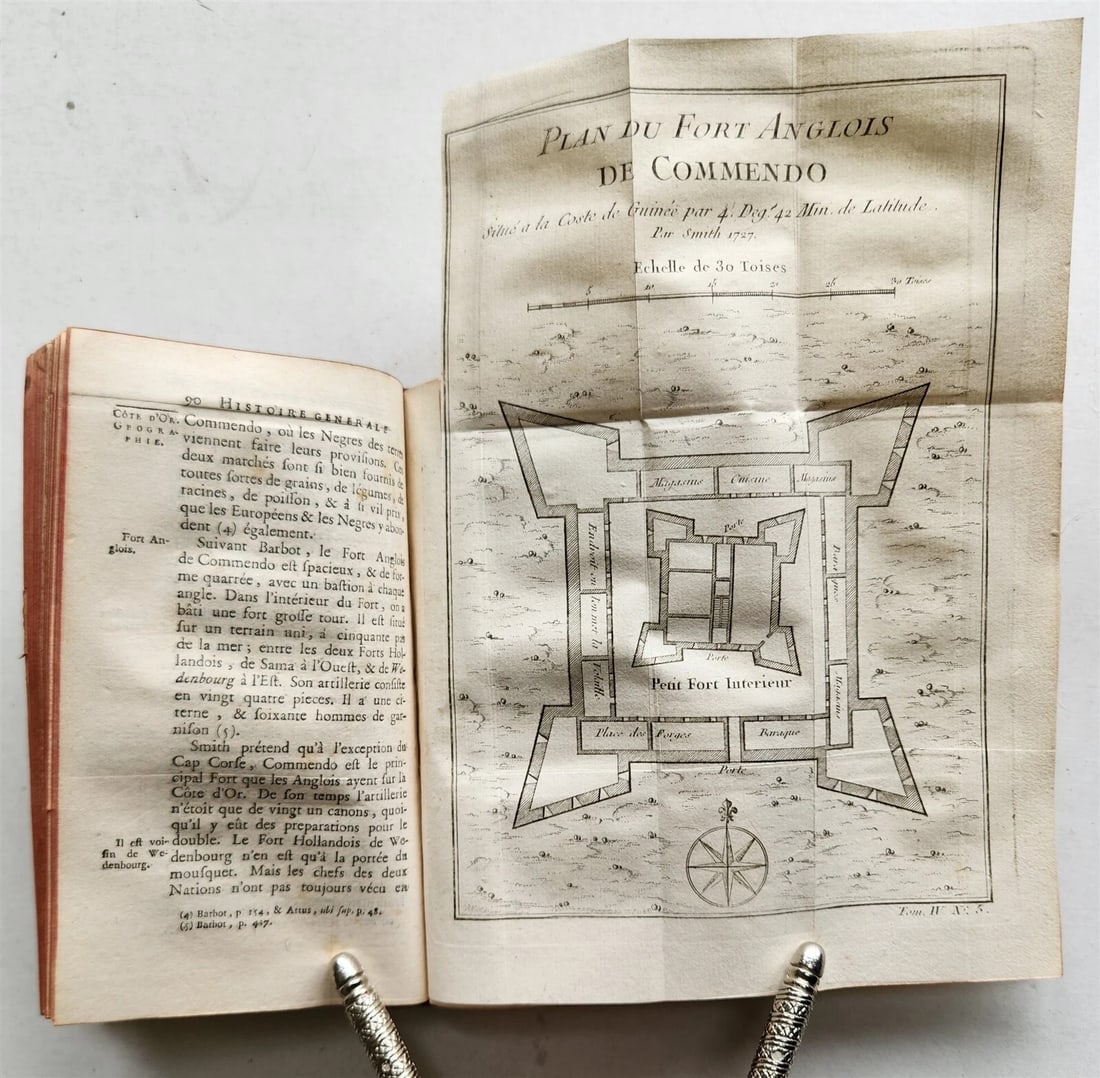 90 HISTOIRE GENERALE
CÔTE D'OR.
GEOGRA-
PHIE.
Commendo, où les Negres des terres
viennent faire leurs provisions. Ces
deux marchés sont si bien fournis de
toutes sortes de grains, de légumes, de
racines, de poisson, & à si vil prix,
que les Européens & les Negres y abon-
dent (4) également.
Fort An-
glois.
Suivant Barbot, le Fort Anglois
de Commendo est spacieux, & de for-
me quarrée, avec un bastion à chaque
angle. Dans l'intérieur du Fort, on a
bâti une fort grosse tour. Il est situé
sur un terrain uni, à cinquante pas
de la mer; entre les deux Forts Hol-
landois, de Sama à l'Ouest, & de We-
denbourg à l'Est. Son artillerie consiste
en vingt quatre pieces. Il a une ci-
terne, & soixante hommes de gar-
nison (5).
Smith prétend qu'à l'exception du
Cap Corse, Commendo est le prin-
cipal Fort que les Anglois ayent sur la
Côte d'Or. De son temps l'artillerie
n'étoit que de vingt un canons, quoi-
qu'il y eût des preparations pour le
double. Le Fort Hollandois de We-
denbourg n'en est qu'à la portée du
mousquet. Mais les chefs des deux
Nations n'ont pas toujours vécu en
Il est voi-
sin de We-
denbourg.
(4) Barbot, p. 154, & Artus, ubi sup. p. 48.
(5) Barbot, p. 427.
PLAN DU FORT ANGLOIS
DE COMMENDO
Situé a la Coste de Guinée par 4. Deg.s 42 Min. de Latitude.
Par Smith 1727.
Echelle de 30 Toises
5 10 15 20 25 30 Toises
Magasins Cuisine Magasins
Porte
Endroit où
l'on met la
Volaille
Baraques
Magasins
Porte
Petit Fort Interieur
Place des Forges Baraque
Porte
Tom. IV N.º 5.